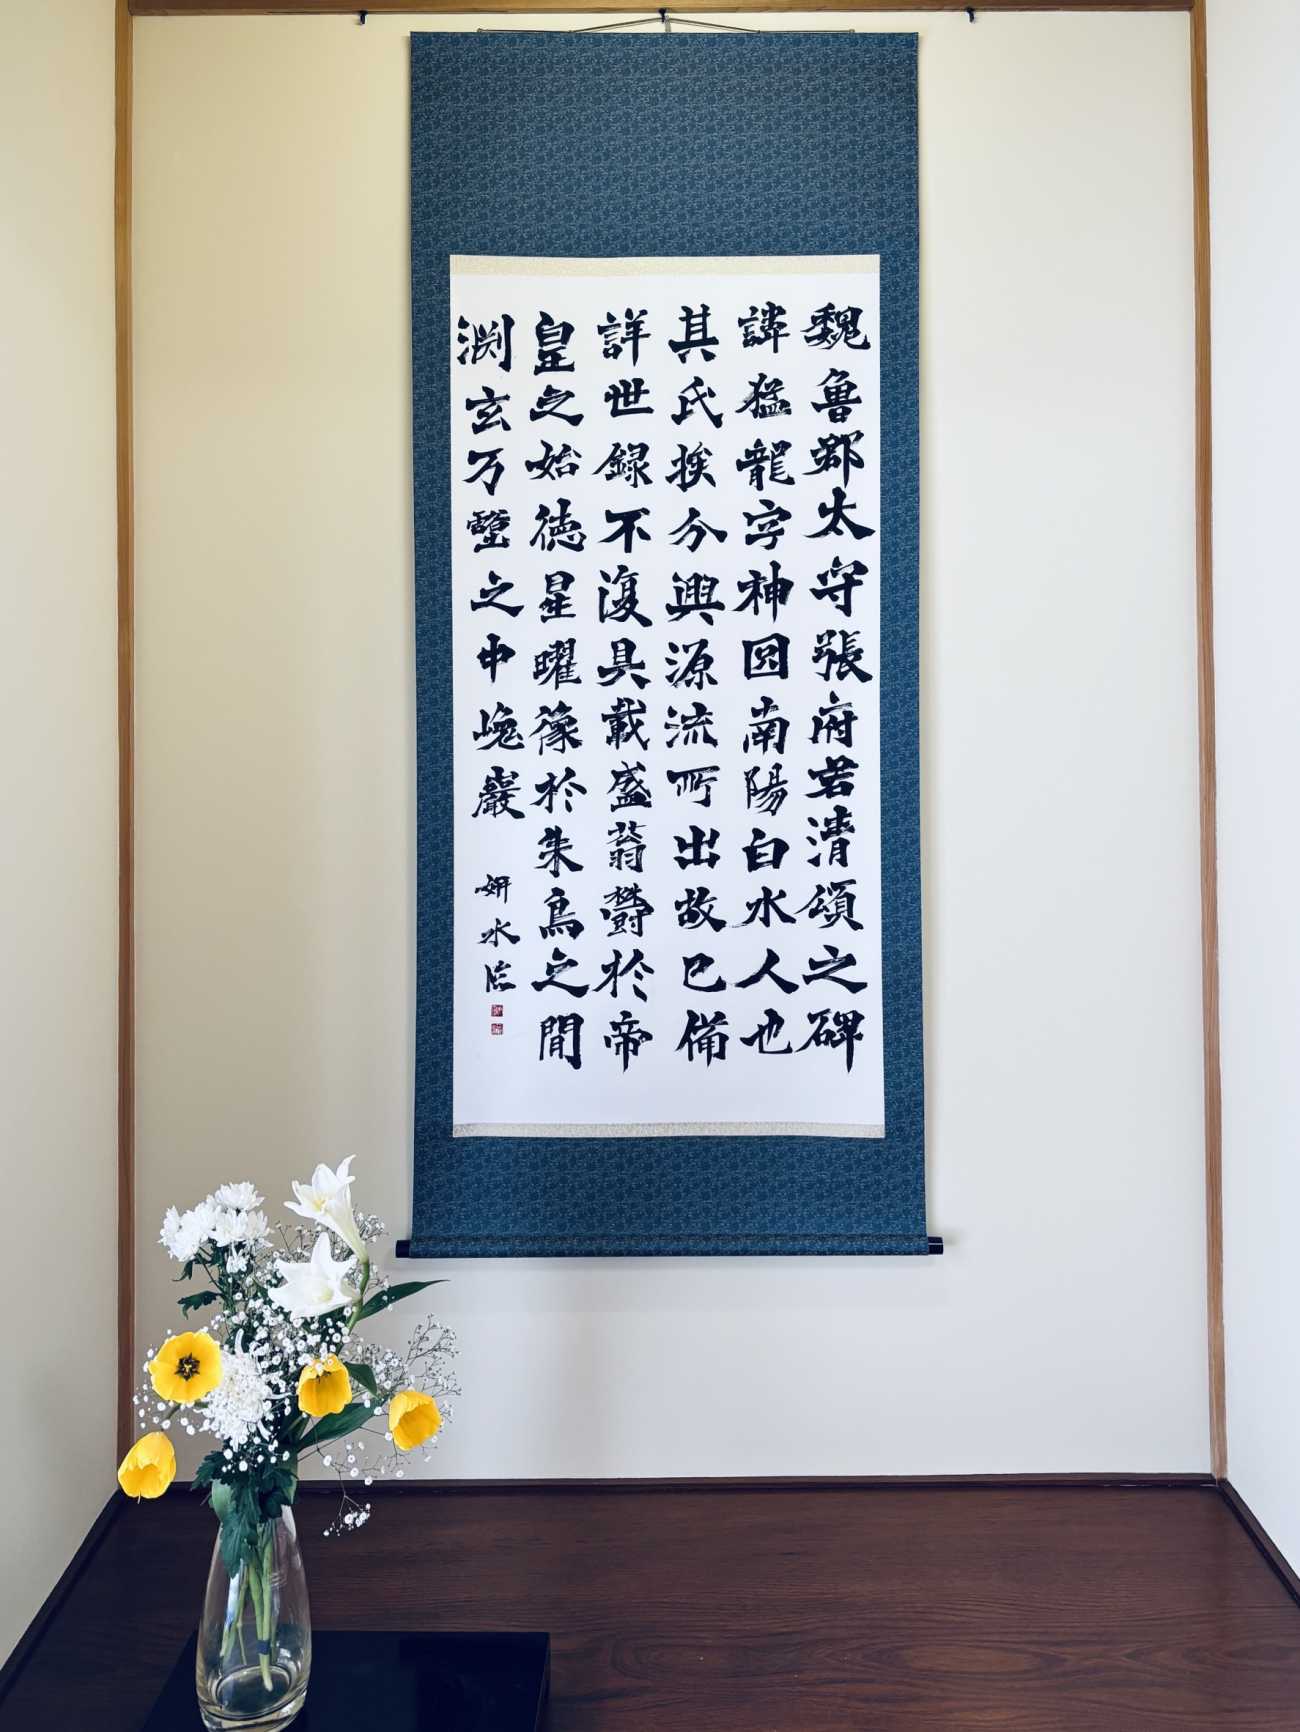 魏魯郡太守張府君清頌之碑
諱猛龍字神囧南陽白水人也
其氏族分興源流所出故已備
詳世録不復具載盛蓊欝於帝
皇之始德星曜像於朱鳥之間
渕玄万壑之中巉巖
妍水臨